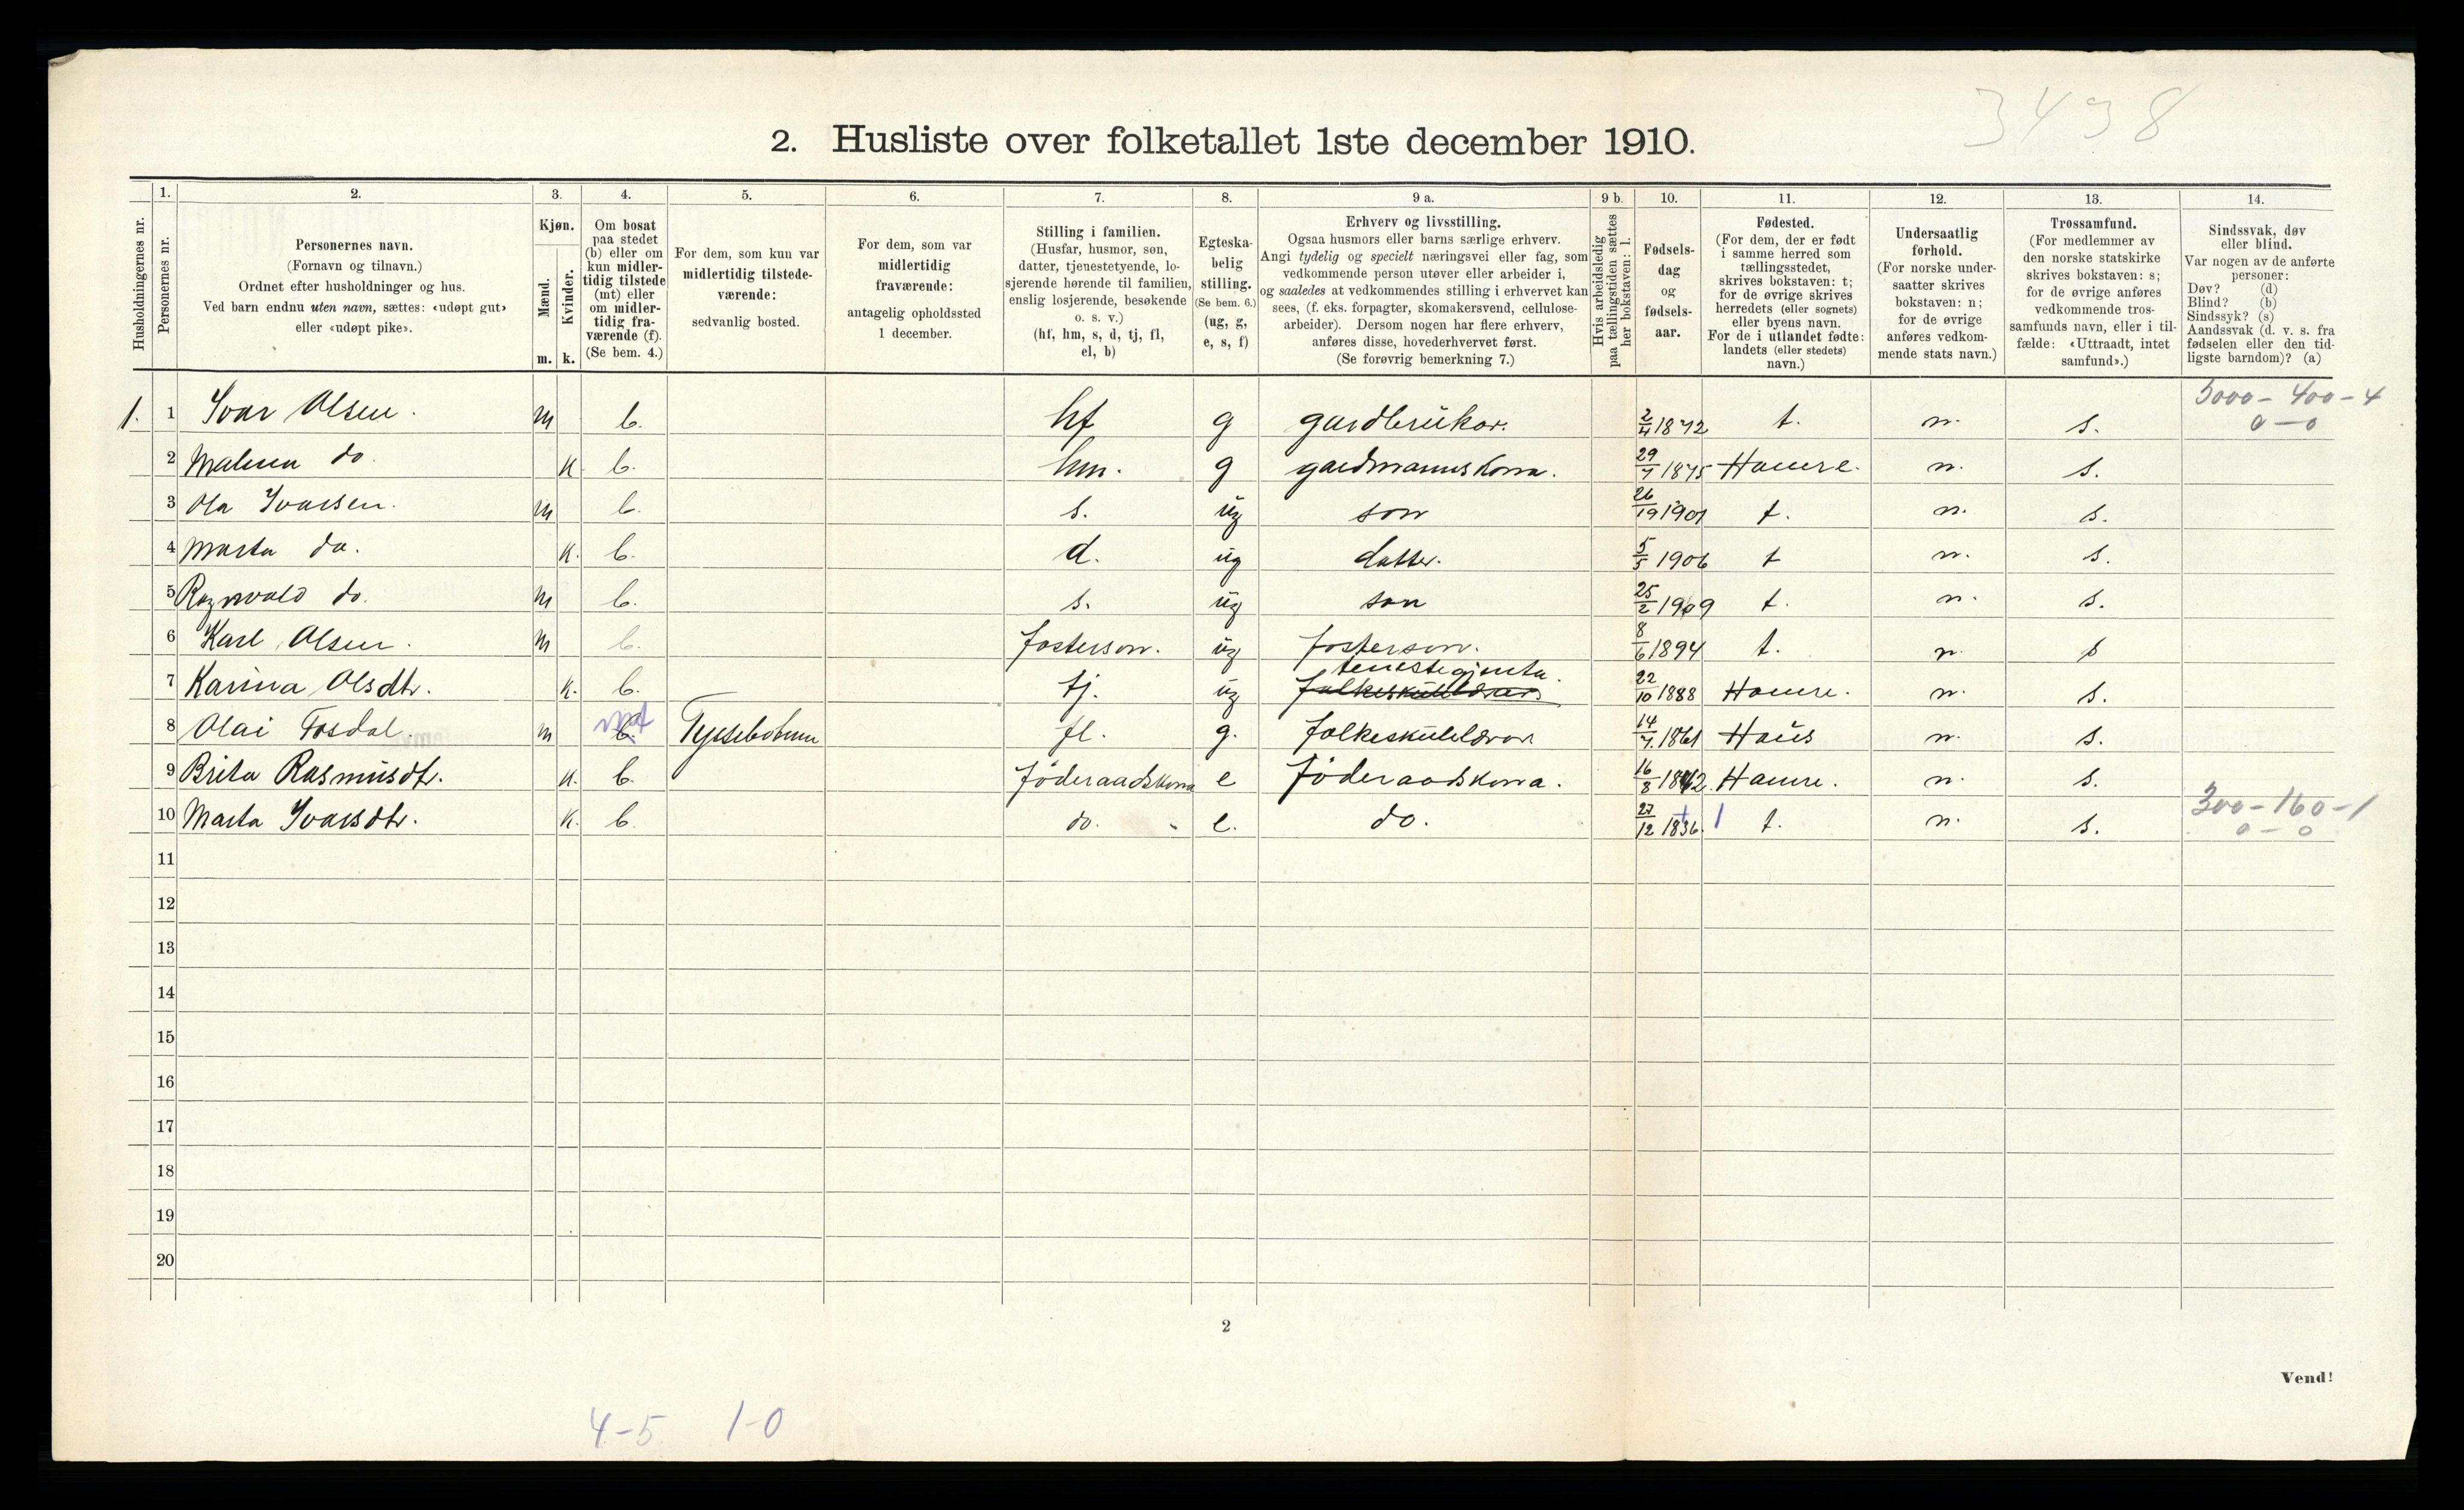 3498
2. Husliste over folketallet 1ste december 1910.
Husholdningernes nr.
1.
Personernes nr.
2.
Personernes navn.
(Fornavn og tilnavn.)
Ordnet efter husholdninger og hus.
Ved barn endnu uten navn, sættes: «udøpt gut»
eller «udøpt pike».
3.
Kjøn.
Mænd.
Kvinder.
m. k.
4.
Om bosat
paa stedet
(b) eller om
kun midler-
tidig tilstede
(mt) eller
om midler-
tidig fra-
værende (f).
(Se bem. 4.)
5.
For dem, som kun var
midlertidig tilstede-
værende:
sedvanlig bosted.
6.
For dem, som var
midlertidig
fraværende:
antagelig opholdssted
1 december.
7.
Stilling i familien.
(Husfar, husmor, søn,
datter, tjenestetyende, lo-
sjerende hørende til familien,
enslig losjerende, besøkende
o. s. v.)
(hf, hm, s, d, tj, fl,
el, b)
8.
Egteska-
belig
stilling.
(Se bem. 6.)
(ug, g,
e, s, f)
9 a.
Erhverv og livsstilling.
Ogsaa husmors eller barns særlige erhverv.
Angi tydelig og specielt næringsvei eller fag, som
vedkommende person utøver eller arbeider i,
og saaledes at vedkommendes stilling i erhvervet kan
sees, (f. eks. forpagter, skomakersvend, cellulose-
arbeider). Dersom nogen har flere erhverv,
anføres disse, hovederhvervet først.
(Se forøvrig bemerkning 7.)
9 b.
Hvis arbeidsledig
paa tællingstiden sættes
her bokstaven: l.
10.
Fødsels-
dag
og
fødsels-
aar.
11.
Fødested.
(For dem, der er født
i samme herred som
tællingsstedet,
skrives bokstaven: t;
for de øvrige skrives
herredets (eller sognets)
eller byens navn.
For de i utlandet fødte:
landets (eller stedets)
navn.)
12.
Undersaatlig
forhold.
(For norske under-
saatter skrives
bokstaven: n;
for de øvrige
anføres vedkom-
mende stats navn.)
13.
Trossamfund.
(For medlemmer av
den norske statskirke
skrives bokstaven: s;
for de øvrige anføres
vedkommende tros-
samfunds navn, eller i til-
fælde: «Uttraadt, intet
samfund».)
14.
Sindssvak, døv
eller blind.
Var nogen av de anførte
personer:
Døv? (d)
Blind? (b)
Sindssyk? (s)
Aandssvak (d. v. s. fra
fødselen eller den tid-
ligste barndom)? (a)
5000 - 400 - 4
1. 1 Ivar Olsen. m b. hf g gardbrukar. 2/4 1872 t. n. s. 0 - 0
2 Malena do. k b. hm. g gardmannskona. 29/7 1875 Hamre. n. s.
3 Ola Ivarsen. m b. s. ug son 26/19 1901 t. n. s.
4 Marta do. k. b. d. ug datter. 5/5 1906 t n. s.
5 Ragnvald do. m b. s. ug son 25/2 1909 t. n. s.
6 Karl Olsen. m b. fosterson. ug fosterson. 8/6 1894 t. n. s
tenestegjenta.
7 Karina Olsdtr. k. b. tj. ug folkeskulelærar 22/10 1888 Hamre. n. s.
8 Olai Fosdal. m mt b. Tyssebotnen fl. g. folkeskulelærar 14/7 1861 Haus n. s.
9 Brita Rasmusdtr. k. b. føderaadskona e føderaadskona. 16/8 1842. Hamre. n. s.
300 - 160 - 1
10 Marta Ivarsdtr. k. b. do. e. do. 27/12 1836. t. n. s. 0 - 0
11
12
13
14
15
16
17
18
19
20
2
Vend!
4-5 1-0